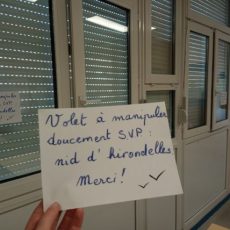 Volet à manipuler
doucement SVP :
nid d'hirondelles
Merci !